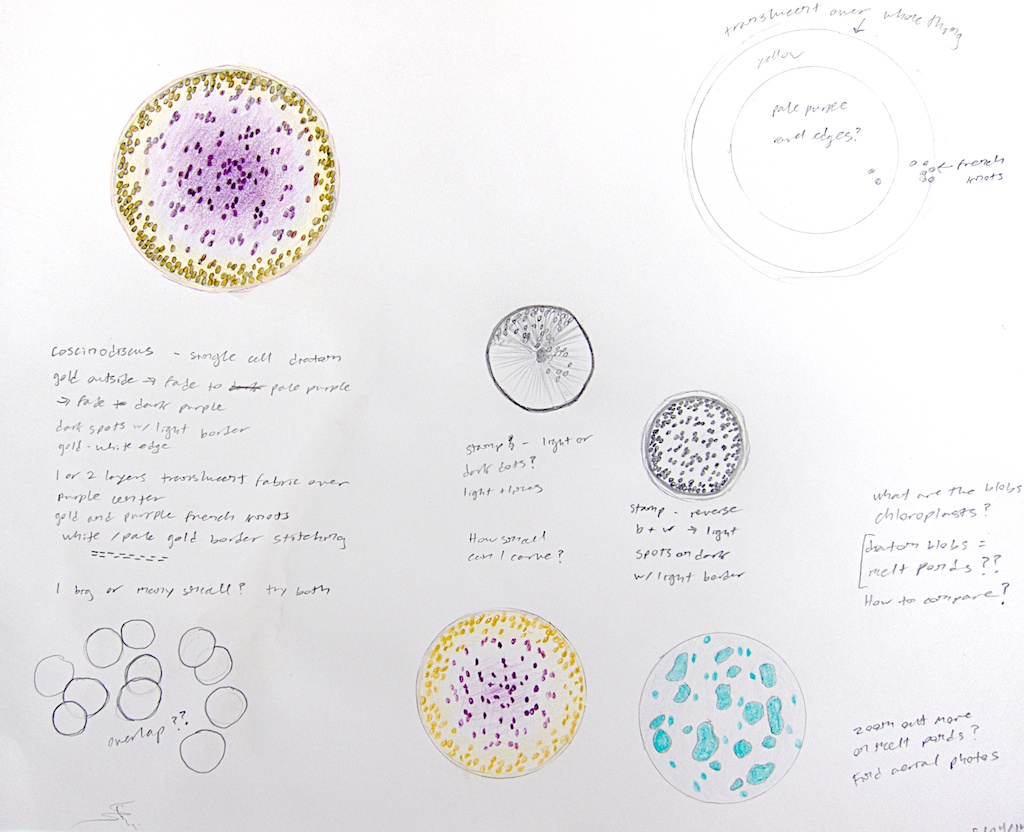 translucent over whole thing
yellow
pale purple
and edges?
← french
knots
coscinodiscus - single cell diatom
gold outside → fade to dark pale purple
→ fade to dark purple
dark spots w/ light border
gold-white edge
1 or 2 layers translucent fabric over
purple center
gold and purple french knots
white / pale gold border stitching
1 big or many small? try both
overlap??
stamp? - light or
dark dots?
light + lines
How small
can I carve?
stamp - reverse
b + w → light
spots on dark
w/ light border
what are the blobs
chloroplasts?
diatom blobs =
melt ponds??
How to compare?
zoom out more
on melt ponds?
Find aerial photos